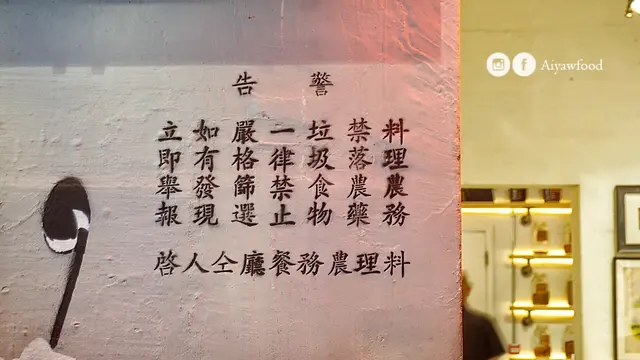 警告
料理農務
禁落農藥
垃圾食物
一律禁止
嚴格篩選
如有發現
立即舉報
料理農務餐廳仝人啓
Aiyawfood